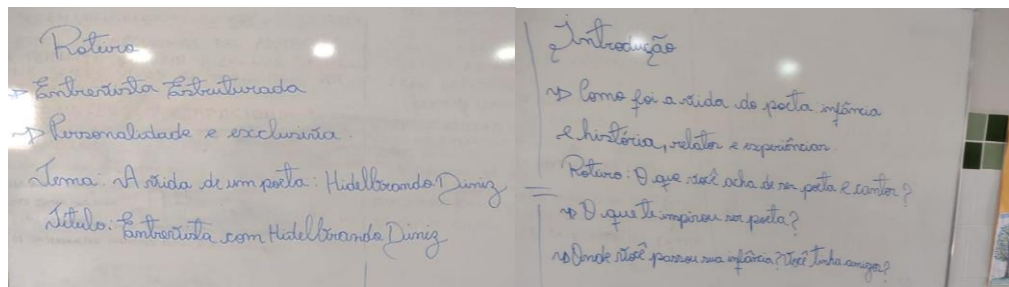 Roteiro
→ Entrevista Estruturada
→ Personalidade e exclusivia.
Tema: A vida de um poeta: Hidelbrando Diniz
Título: Entrevista com Hidelbrando Diniz
Introdução
→ Como foi a vida do poeta infância
e história, relatos e experiências.
Roteiro: O que você acha de ser poeta e cantor?
→ O que te inspirou ser poeta?
→ Onde você passou sua infância? Você tinha amigos?